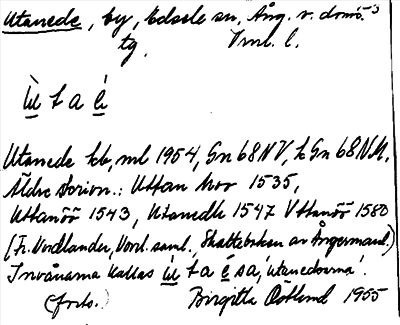 Utanede, by, Edsele sn, Ång. v. doms.
tg. Vml. l.
ù t a é
Utanede kb, ml 1954, Gn 68 NV, k Gn 68 NV,
Äldre skrivn.: Uttan Noor 1535,
Uttanöö 1543, Utanedh 1547 Vttanöö 1580
(Fr. Nordlander, Norrl. saml., Skatteboken av Ångermanl.)
Invånarna kallas ù t a é sa, 'utanedoarna'.
(forts.) Birgitta Östlund 1955